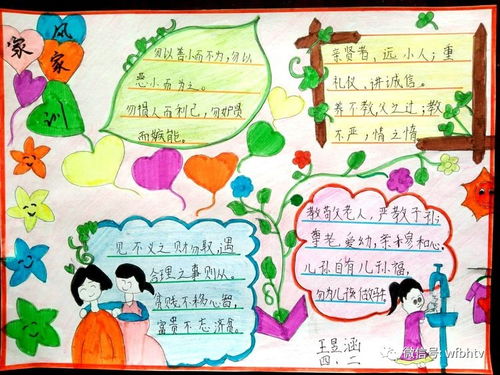 家风家训
勿以善小而不为,勿以
恶小而为之。
勿损人而利己,勿妒贤
而嫉能。
亲贤者,远小人;重
礼仪,讲诚信。
养不教,父之过;教
不严,情之惰。
见不义之财勿取,遇
合理之事则从。
贫贱不移心智,
富贵不忘济贫。
敬老人,严教子孙;
尊老爱幼,亲穆和心,
儿孙自有儿孙福,
勿为儿孩做马牛。
王昱涵
四、二
微信号:wfbhtv